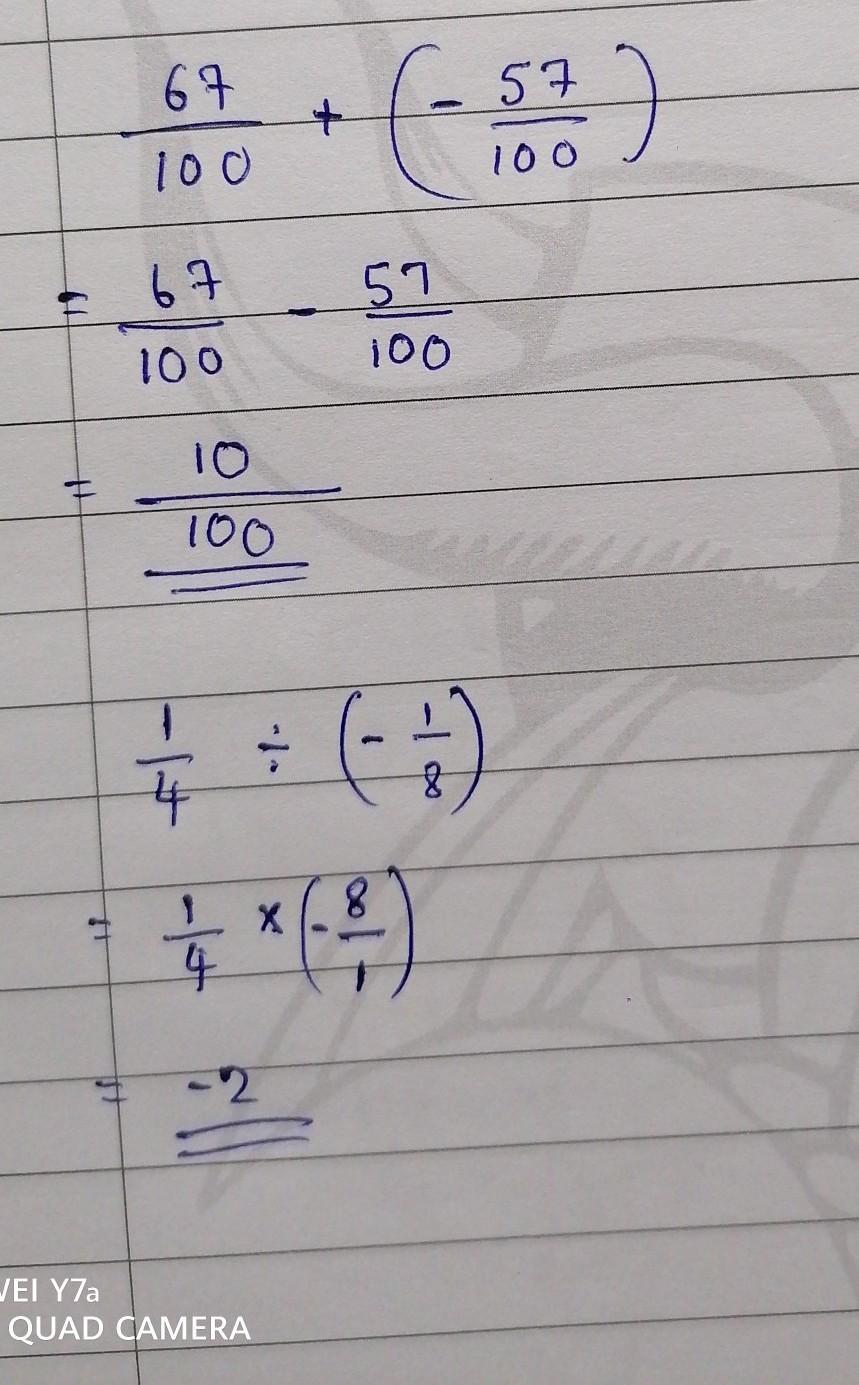 67/100 + (- 57/100)
= 67/100 - 57/100
= 10/100
1/4 ÷ (- 1/8)
= 1/4 × (- 8/1)
= -2
WEI Y7a
QUAD CAMERA